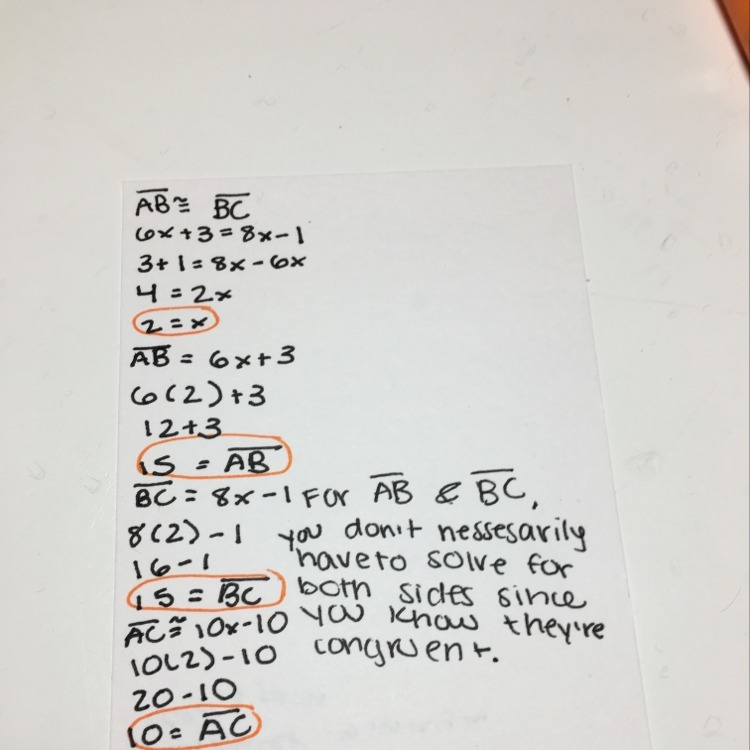 AB ≅ BC
6x + 3 = 8x - 1
3 + 1 = 8x - 6x
4 = 2x
2 = x
AB = 6x + 3
6(2) + 3
12 + 3
15 = AB
BC = 8x - 1
8(2) - 1
16 - 1
15 = BC
AC ≅ 10x - 10
10(2) - 10
20 - 10
10 = AC
For AB & BC,
you don't nessesarily
have to solve for
both sides since
you know they're
congruent.